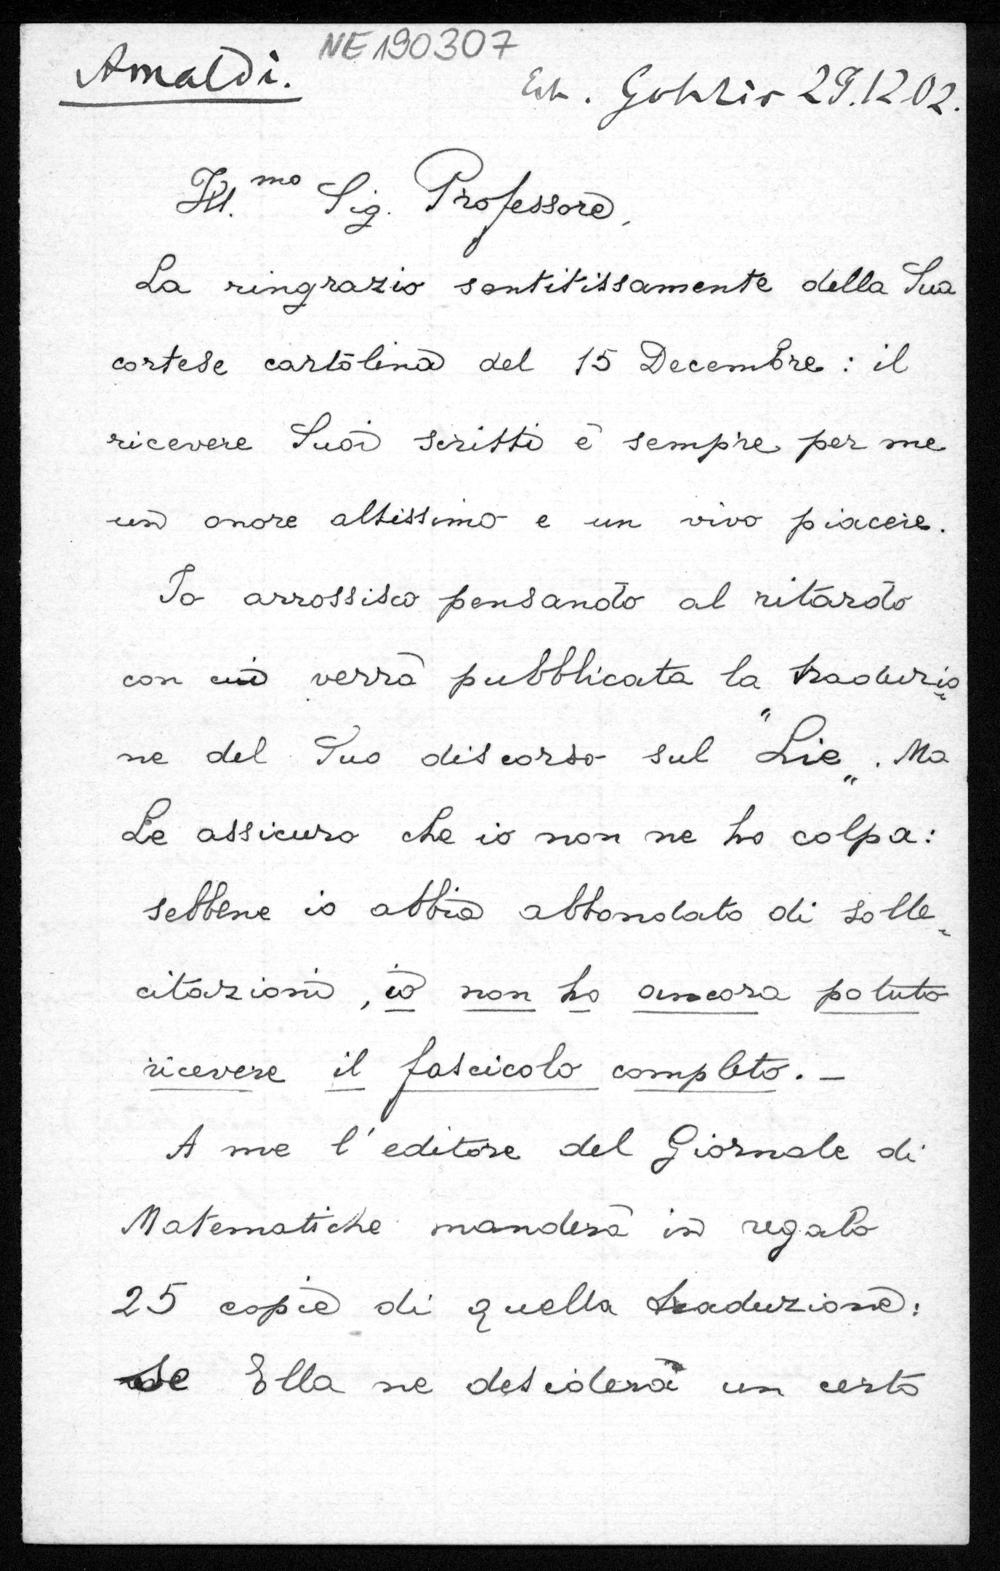 NE190307
Amaldi.
29.12.02.
Ill.mo Sig. Professore,
La ringrazio sentitissamente della Sua
cortese cartolina del 15 Decembre: il
ricevere Suoi scritti è sempre per me
un onore altissimo e un vivo piacere.
Io arrossisco pensando al ritardo
con cui verrà pubblicata la traduzio-
ne del Suo discorso sul "Lie". Ma
Le assicuro che io non ne ho colpa:
sebbene io abbia abbondato di solle-
citazioni, io non ho ancora potuto
ricevere il fascicolo completo. –
A me l'editore del Giornale di
Matematiche manderà in regalo
25 copie di quella traduzione:
se Ella ne desidera un certo